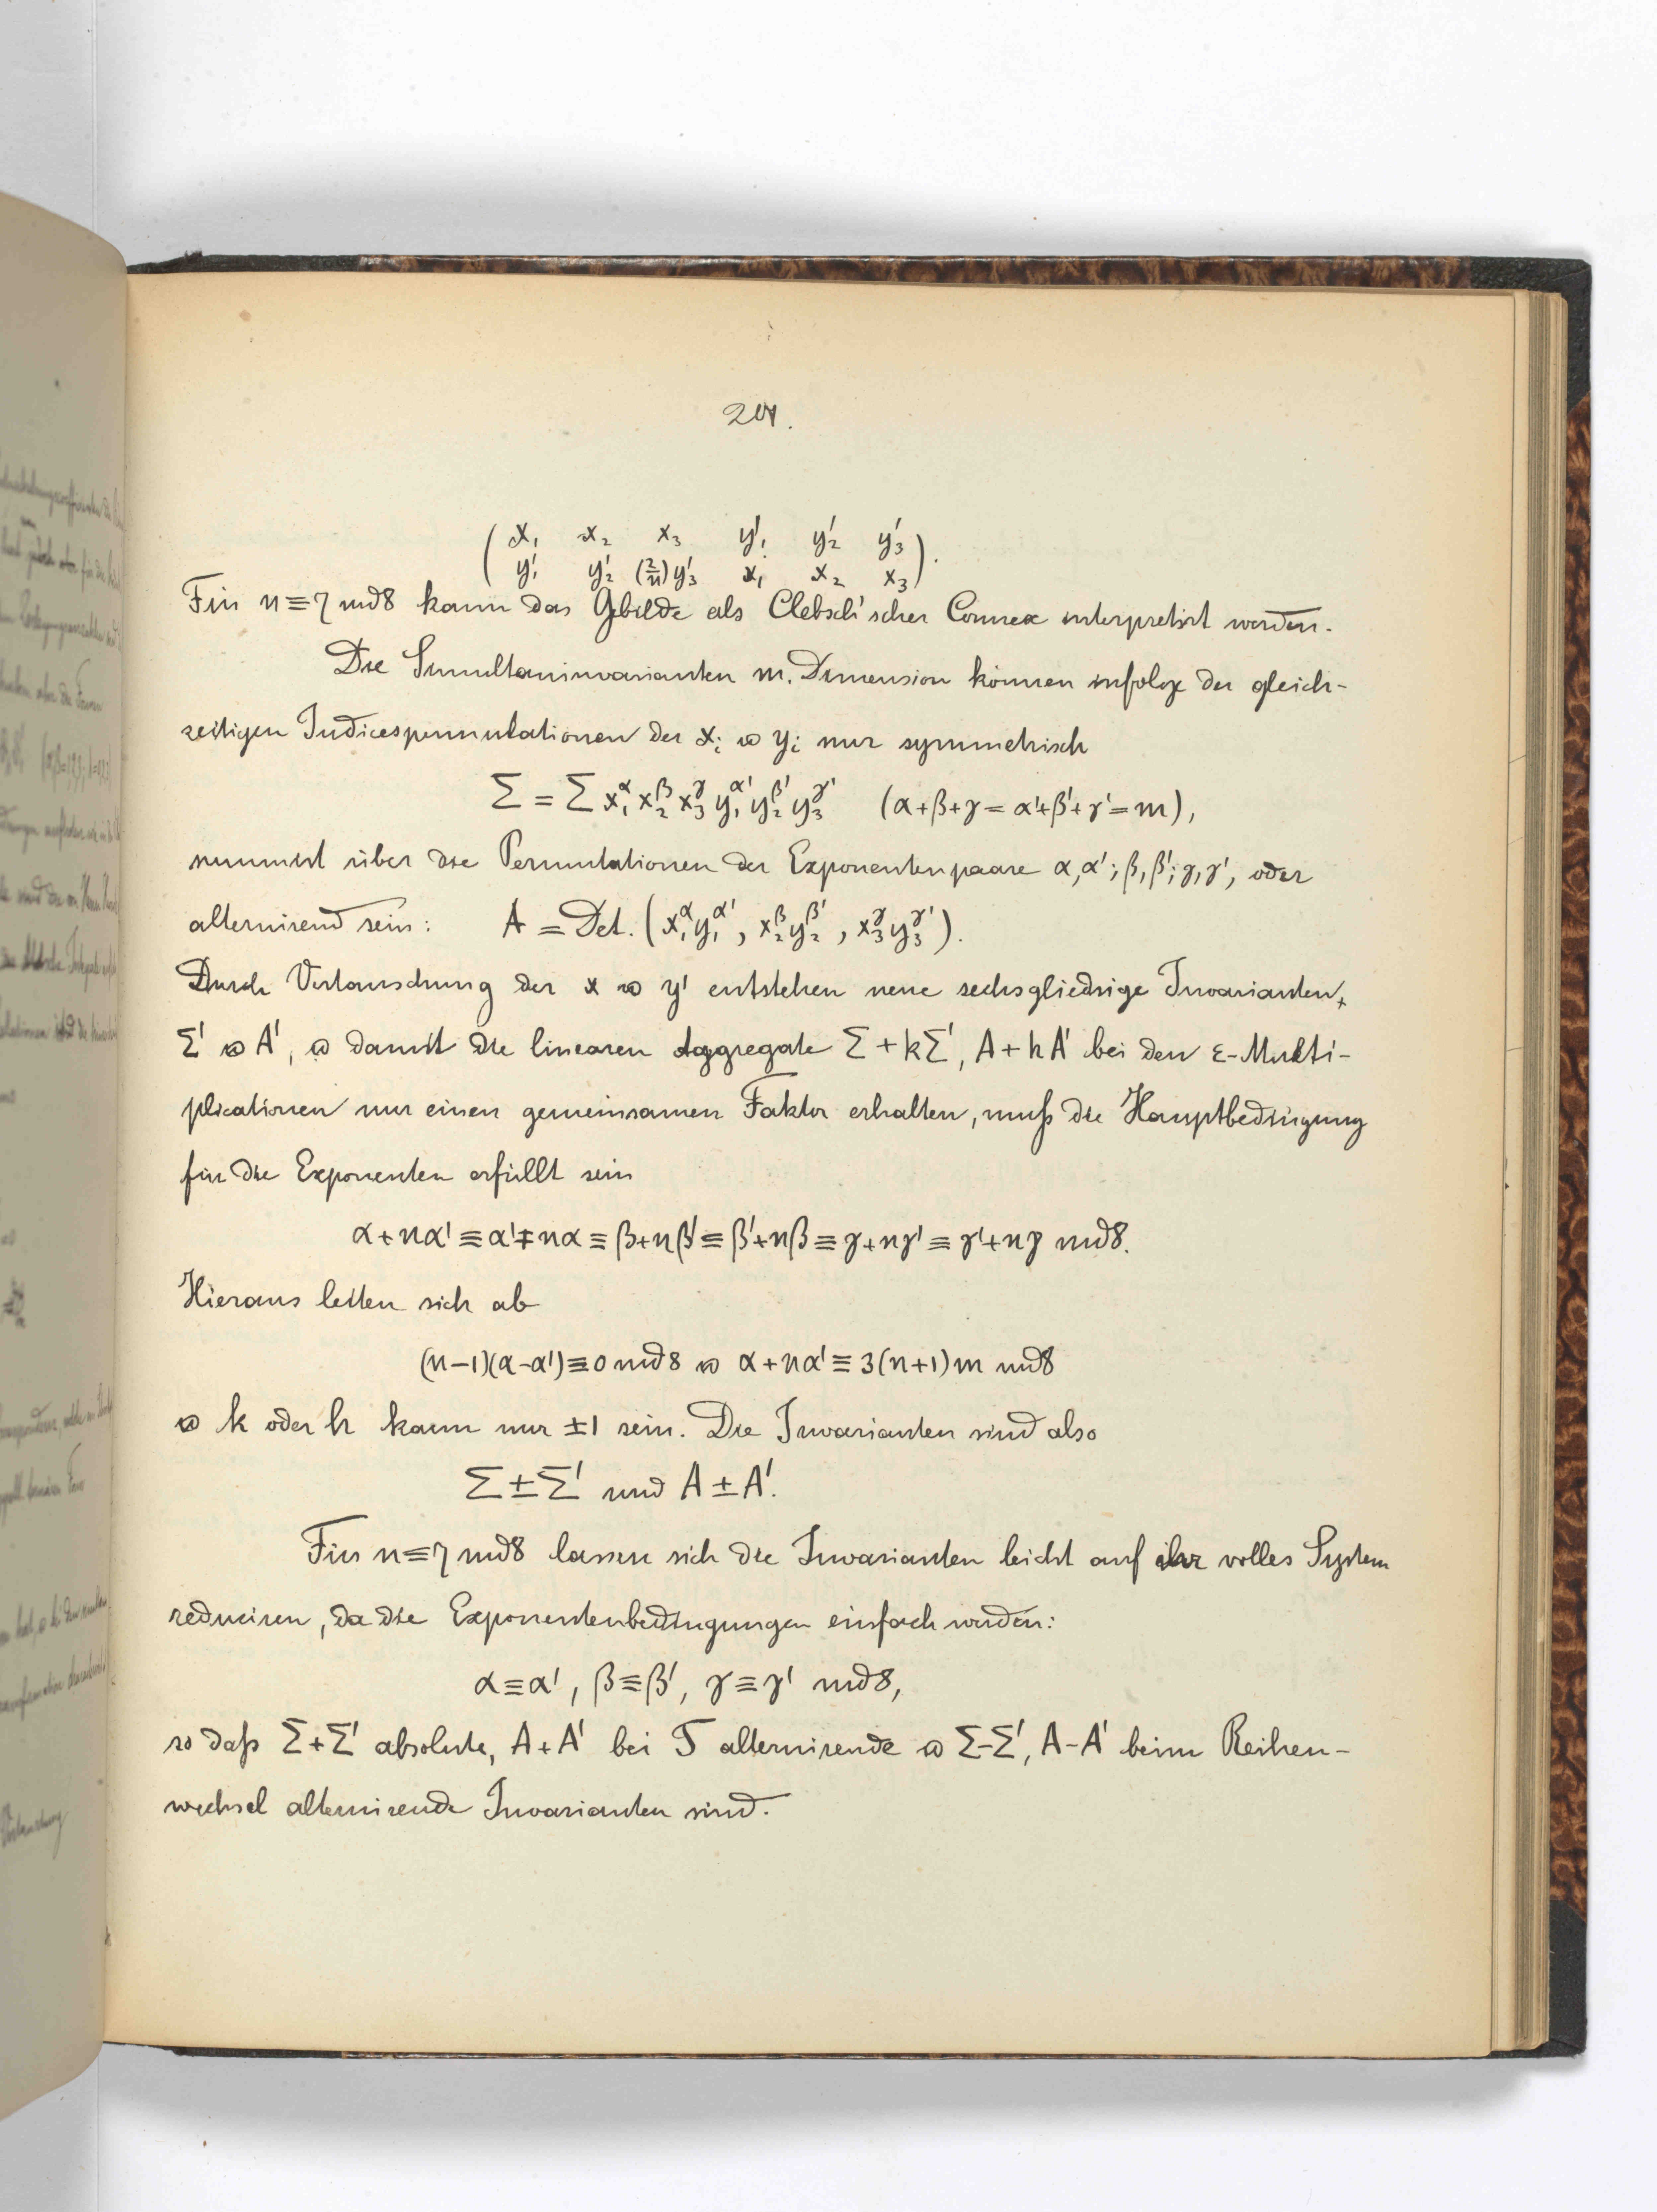 201.
( x₁ x₂ x₃ y'₁ y'₂ y'₃
y'₁ y'₂ (2/n)y'₃ x₁ x₂ x₃ ).
Für n≡7 mod 8 kann das Gebilde als Clebsch'scher Connex interpretirt werden.
Die Simultaninvarianten m. Dimension können infolge der gleich-
zeitigen Indicespermutationen der xᵢ u yᵢ nur symmetrisch
Σ = Σ x₁^α x₂^β x₃^γ y₁^α' y₂^β' y₃^γ' (α+β+γ = α'+β'+γ' = m),
summirt über die Permutationen der Exponentenpaare α,α'; β,β'; γ,γ', oder
alternirend sein: A = Det. (x₁^α y₁^α', x₂^β y₂^β', x₃^γ y₃^γ').
Durch Vertauschung der x u y' entstehen neue sechsgliedrige Invarianten,
Σ' u A', u damit die linearen Aggregate Σ + kΣ', A + hA' bei den ε-Multi-
plicationen nur einen gemeinsamen Faktor erhalten, muß die Hauptbedingung
für die Exponenten erfüllt sein
α+nα' ≡ α'+nα ≡ β+nβ' ≡ β'+nβ ≡ γ+nγ' ≡ γ'+nγ mod 8.
Hieraus leiten sich ab
(n-1)(α-α') ≡ 0 mod 8 u α+nα' ≡ 3(n+1)m mod 8
u k oder h kann nur ±1 sein. Die Invarianten sind also
Σ ± Σ' und A ± A'.
Für n≡7 mod 8 lassen sich die Invarianten leicht auf ihr volles System
reduciren, da die Exponentenbedingungen einfach werden:
α≡α', β≡β', γ≡γ' mod 8,
so daß Σ+Σ' absolute, A+A' bei T alternirende u Σ-Σ', A-A' beim Reihen-
wechsel alternirende Invarianten sind.